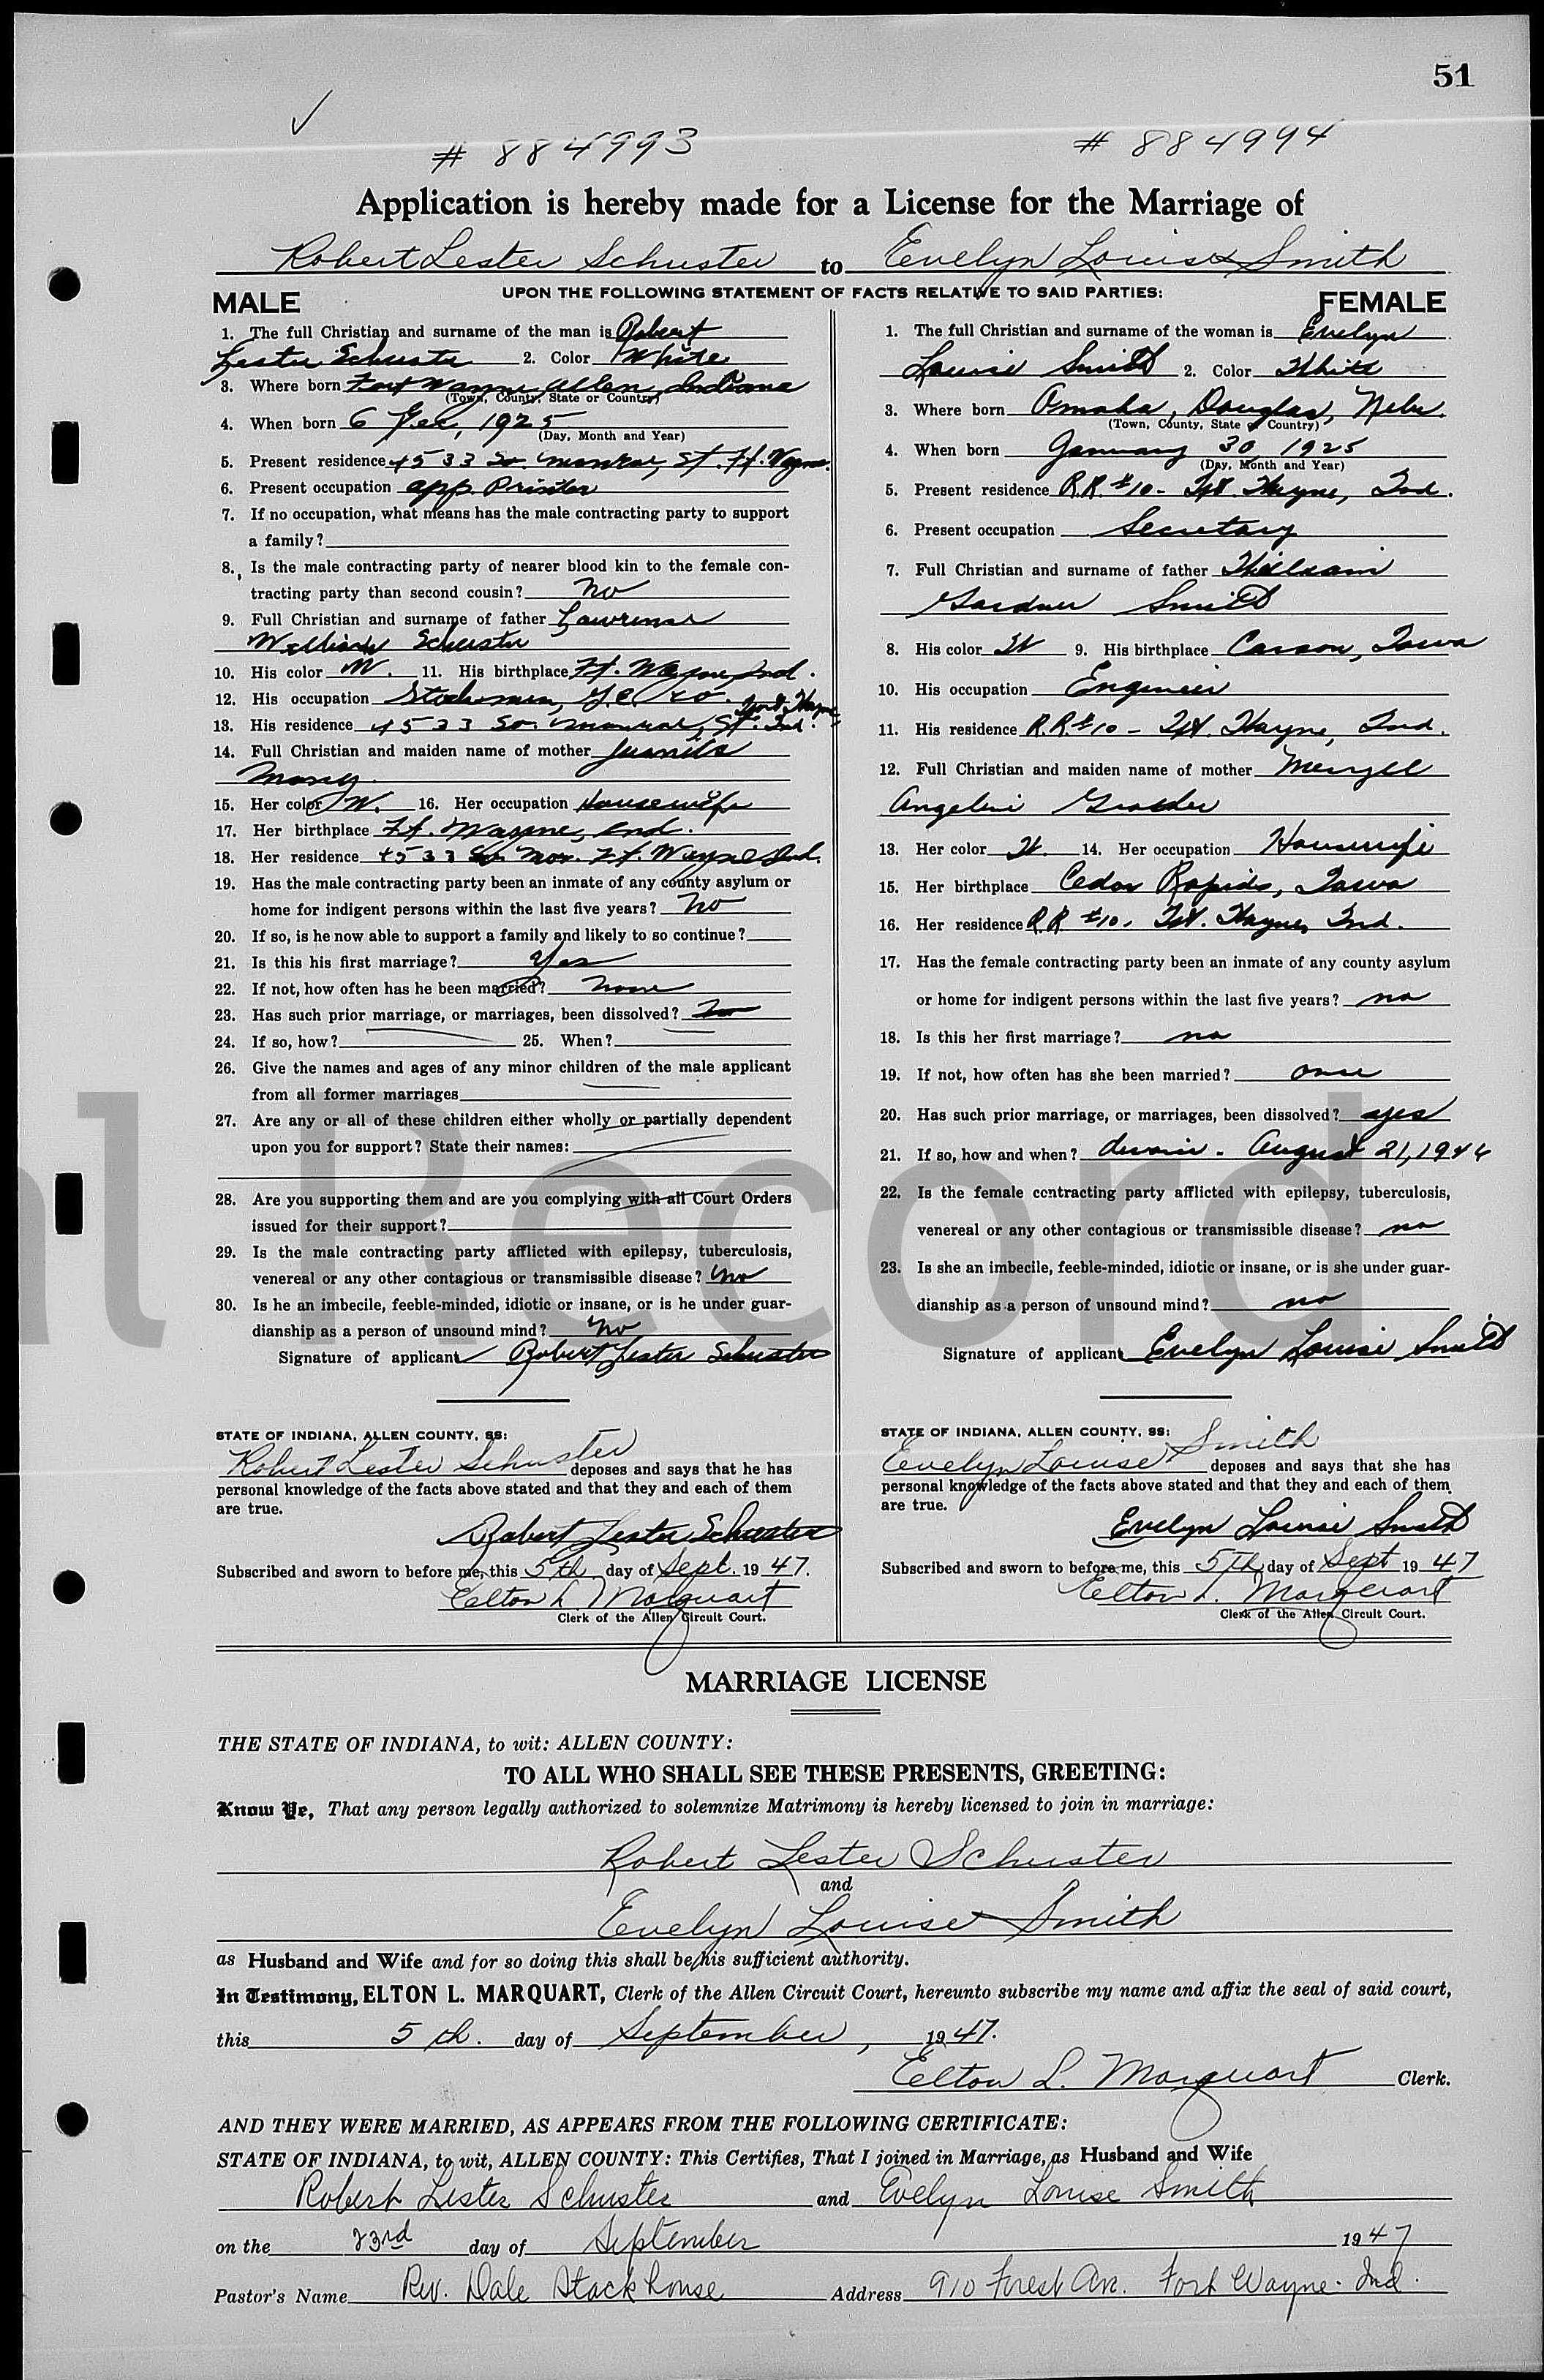 51
✓
# 884993 # 884994
Application is hereby made for a License for the Marriage of
Robert Lester Schuster to Evelyn Louise Smith
UPON THE FOLLOWING STATEMENT OF FACTS RELATIVE TO SAID PARTIES:
MALE
1. The full Christian and surname of the man is Robert
Lester Schuster 2. Color White
3. Where born Fort Wayne, Allen, Indiana
(Town, County, State or Country)
4. When born 6 , 1925
(Day, Month and Year)
5. Present residence 4533 So. Monroe, St. Ft. Wayne.
6. Present occupation app. Printer
7. If no occupation, what means has the male contracting party to support
a family?
8. Is the male contracting party of nearer blood kin to the female con-
tracting party than second cousin? no
9. Full Christian and surname of father Lawrence
William Schuster
10. His color W. 11. His birthplace Ft. Wayne Ind.
12. His occupation G.E. Co.
13. His residence 4533 So. Monroe, St. Fort Wayne, Ind.
14. Full Christian and maiden name of mother Juanita
15. Her color W. 16. Her occupation Housewife
17. Her birthplace Ft. Wayne, Ind.
18. Her residence 4533 So. Mon. Ft. Wayne Ind.
19. Has the male contracting party been an inmate of any county asylum or
home for indigent persons within the last five years? no
20. If so, is he now able to support a family and likely to so continue?
21. Is this his first marriage? Yes
22. If not, how often has he been married? none
23. Has such prior marriage, or marriages, been dissolved?
24. If so, how? 25. When?
26. Give the names and ages of any minor children of the male applicant
from all former marriages
27. Are any or all of these children either wholly or partially dependent
upon you for support? State their names:
28. Are you supporting them and are you complying with all Court Orders
issued for their support?
29. Is the male contracting party afflicted with epilepsy, tuberculosis,
venereal or any other contagious or transmissible disease? no
30. Is he an imbecile, feeble-minded, idiotic or insane, or is he under guar-
dianship as a person of unsound mind? no
Signature of applicant Robert Lester Schuster
STATE OF INDIANA, ALLEN COUNTY, SS:
Robert Lester Schuster deposes and says that he has
personal knowledge of the facts above stated and that they and each of them
are true.
Robert Lester Schuster
Subscribed and sworn to before me, this 5th day of Sept. 1947.
Elton L. Marquart
Clerk of the Allen Circuit Court.
FEMALE
1. The full Christian and surname of the woman is Evelyn
Louise Smith 2. Color White
3. Where born Omaha, Douglas, Nebr.
(Town, County, State or Country)
4. When born January 30, 1925
(Day, Month and Year)
5. Present residence R.R. #10 - Ft. Wayne, Ind.
6. Present occupation Secretary
7. Full Christian and surname of father William
Gardner Smith
8. His color W 9. His birthplace Carson, Iowa
10. His occupation Engineer
11. His residence R.R. #10 - Ft. Wayne, Ind.
12. Full Christian and maiden name of mother
13. Her color W. 14. Her occupation Housewife
15. Her birthplace Cedar Rapids, Iowa
16. Her residence R.R #10, Ft. Wayne, Ind.
17. Has the female contracting party been an inmate of any county asylum
or home for indigent persons within the last five years? no
18. Is this her first marriage? no
19. If not, how often has she been married? once
20. Has such prior marriage, or marriages, been dissolved? yes
21. If so, how and when? divorce - August 21, 1946
22. Is the female contracting party afflicted with epilepsy, tuberculosis,
venereal or any other contagious or transmissible disease? no
23. Is she an imbecile, feeble-minded, idiotic or insane, or is she under guar-
dianship as a person of unsound mind? no
Signature of applicant Evelyn Louise Smith
STATE OF INDIANA, ALLEN COUNTY, SS:
Evelyn Louise Smith deposes and says that she has
personal knowledge of the facts above stated and that they and each of them
are true.
Evelyn Louise Smith
Subscribed and sworn to before me, this 5th day of Sept 1947
Elton L. Marquart
Clerk of the Allen Circuit Court.
l Record
MARRIAGE LICENSE
THE STATE OF INDIANA, to wit: ALLEN COUNTY:
TO ALL WHO SHALL SEE THESE PRESENTS, GREETING:
Know Ye, That any person legally authorized to solemnize Matrimony is hereby licensed to join in marriage:
Robert Lester Schuster
and
Evelyn Louise Smith
as Husband and Wife and for so doing this shall be his sufficient authority.
In Testimony, ELTON L. MARQUART, Clerk of the Allen Circuit Court, hereunto subscribe my name and affix the seal of said court,
this 5th. day of September, 1947.
Elton L. Marquart Clerk.
AND THEY WERE MARRIED, AS APPEARS FROM THE FOLLOWING CERTIFICATE:
STATE OF INDIANA, to wit, ALLEN COUNTY: This Certifies, That I joined in Marriage, as Husband and Wife
Robert Lester Schuster and Evelyn Louise Smith
on the 23rd day of September 1947
Pastor's Name Rev. Dale Stackhouse Address 910 Forest Ave. Fort Wayne. Ind.